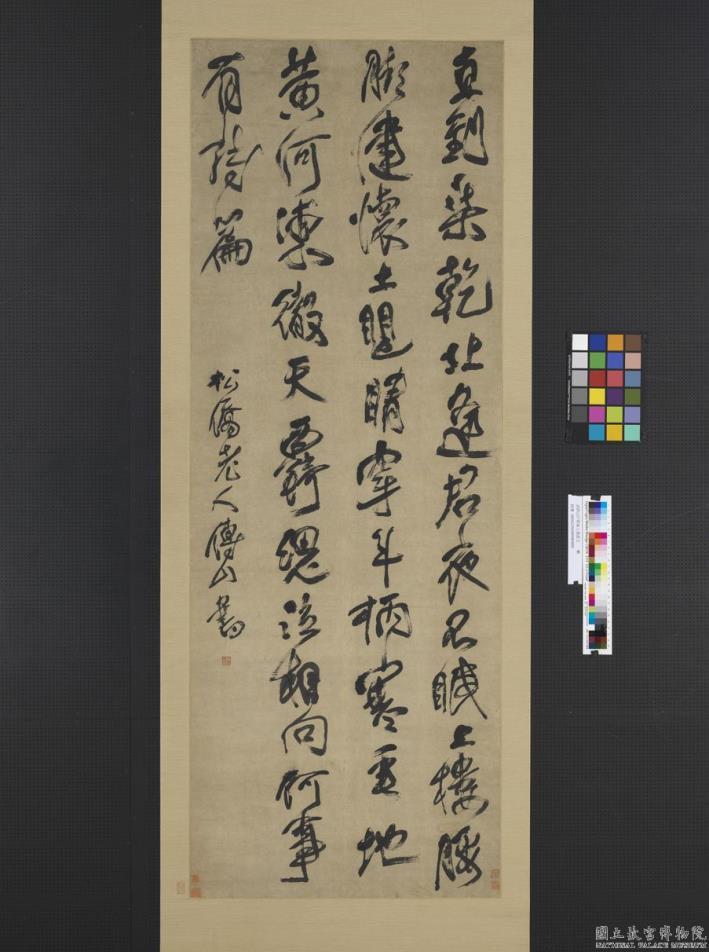 直到桑乾北逢君夜不眠上樓腰
脚健懷土眼睛穿斗柄寒垂地
黃河凍徹天羇泣相向何事
有詩篇
松僑老人傅山書
國立故宮博物院
NATIONAL PALACE MUSEUM